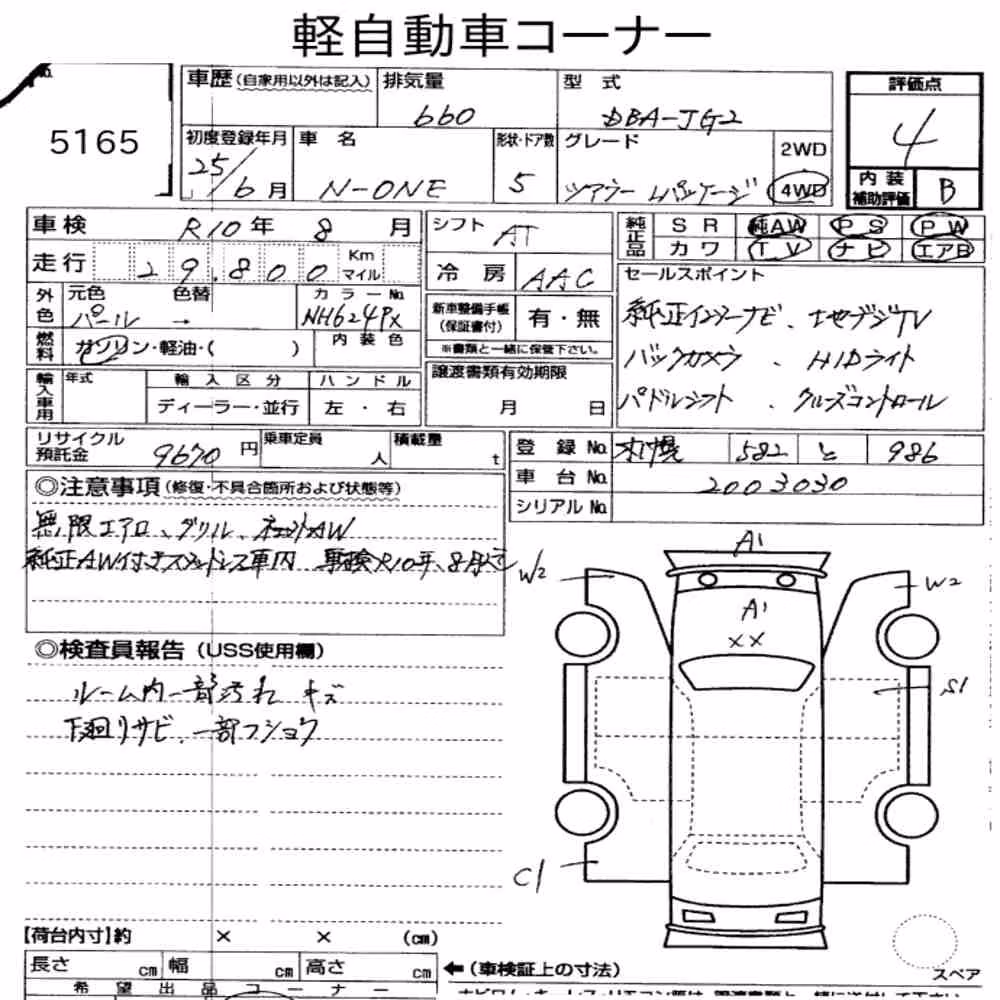 軽自動車コーナー
No.
5165
車歴 (自家用以外は記入)
排気量
660
型式
DBA-JG2
評価点
4
内装補助評価
B
初度登録年月
25/6月
車名
N-ONE
形状・ドア数
5
グレード
ツアラー Lパッケージ
2WD
4WD
車検 R10年 8月
走行 29.800 Km マイル
外色
元色 色替
パール →
カラーNo.
NH624PX
燃料
ガソリン・軽油・( )
内装色
輸入車用
年式
輸入区分
ディーラー・並行
ハンドル
左・右
シフト AT
冷房 AAC
新車整備手帳(保証書付)
有・無
※書類と一緒に保管下さい。
譲渡書類有効期限
月 日
純正品 SR 純AW PS PW
カワ TV ナビ エアB
セールスポイント
純正インターナビ、フルセグデジTV
バックカメラ、HIDライト
パドルシフト、クルーズコントロール
リサイクル預託金 9670円
乗車定員 人
積載量 t
登録No. 札幌 582 と 986
車台No. 2003030
シリアルNo.
◎注意事項 (修復・不具合箇所および状態等)
無限エアロ、グリル、社外AW
純正AW付きスタッドレス車内 車検R10年8月迄
◎検査員報告 (USS使用欄)
ルーム内一部汚れ キズ
下廻りサビ、一部フショク
A1
W2
W2
A1
××
S1
C1
スペア
【荷台内寸】約 × × (cm)
長さ cm 幅 cm 高さ cm
←(車検証上の寸法)
希望出品コーナー